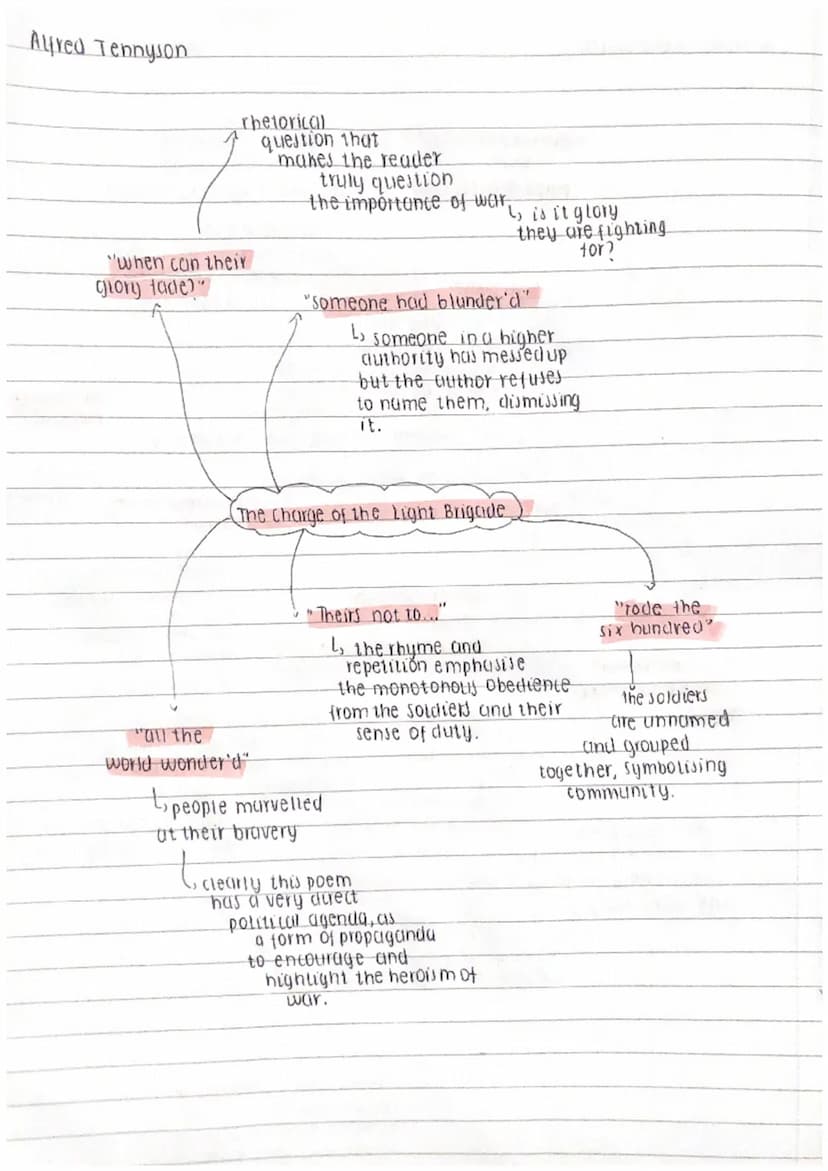 Alfred Tennyson
rhetorical
question that
makes the reader
truly question
the importance of war.
↳ is it glory
they are fighting
for?
"when can their
glory fade?"
"someone had blunder'd"
↳ someone in a higher
authority has messed up
but the author refuses
to name them, dismissing
it.
The Charge of the Light Brigade
"Theirs not to..."
↳ the rhyme and
repetition emphasise
the monotonous obedience
from the soldiers and their
sense of duty.
"rode the
six hundred"
the soldiers
are unnamed
and grouped
together, symbolising
community.
"all the
world wonder'd"
↳ people marvelled
at their bravery
↳ clearly this poem
has a very direct
political agenda, as
a form of propaganda
to encourage and
highlight the heroism of
war.